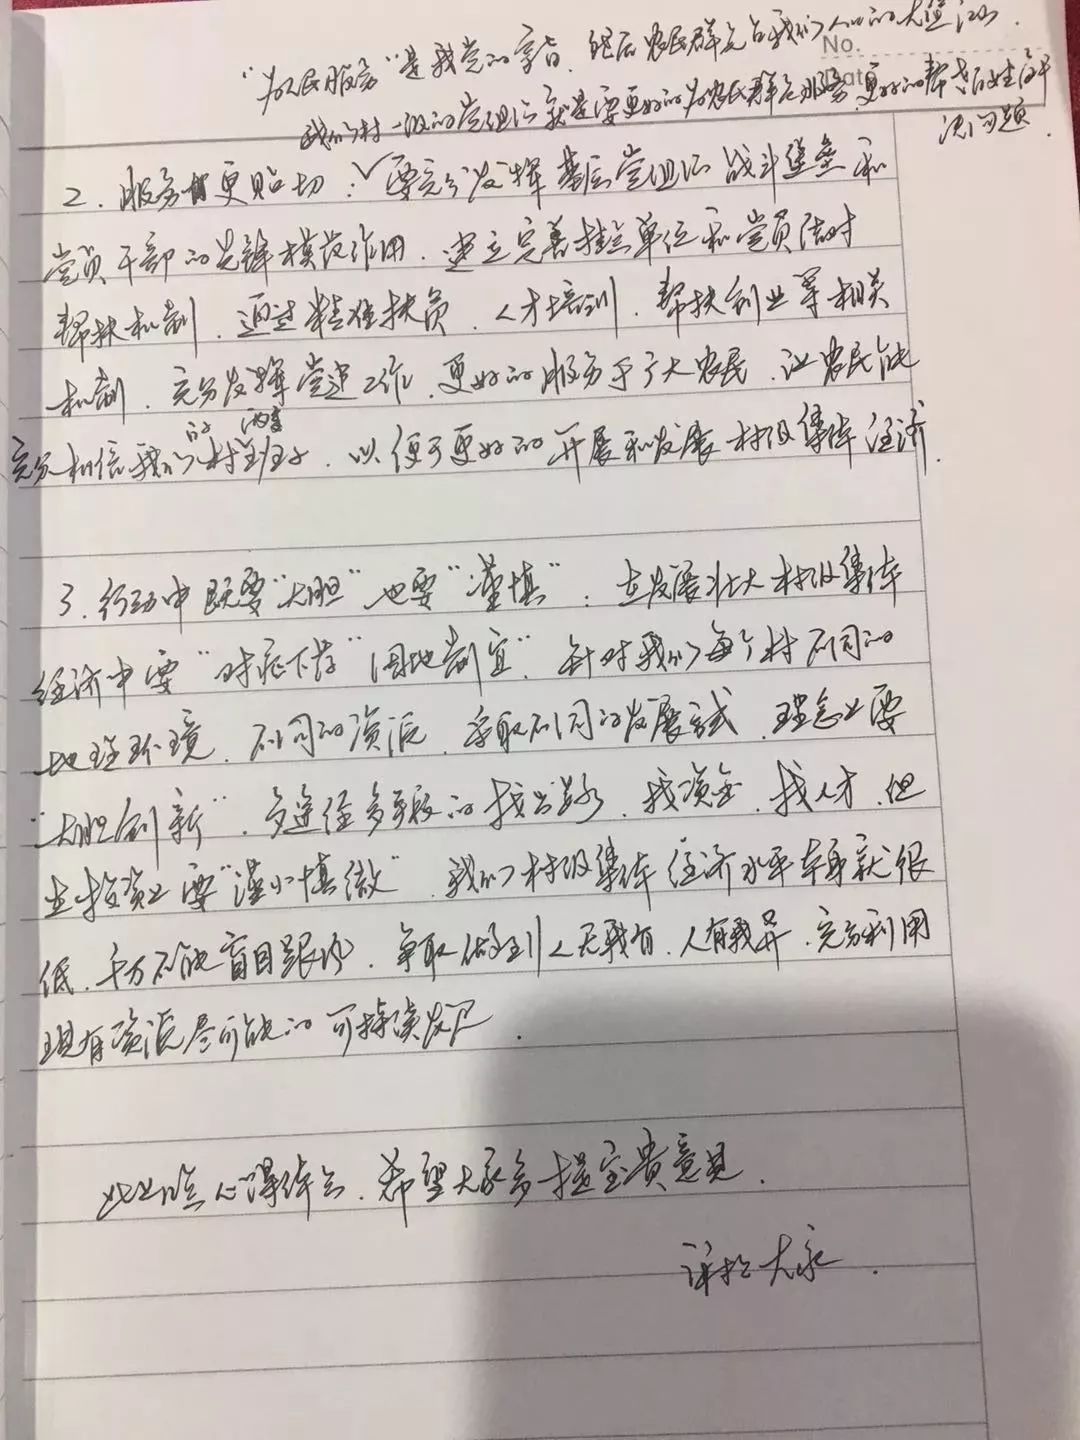 "为人民服务"是我党的宗旨,然后农民群众占我们人口的大值
No.
Date
我们村一级的党组织就是要更好的为农民群众服务,更好的帮老百姓解
决问题.
2. 服务更贴切: 要充分发挥基层党组织战斗堡垒和
党员干部的先锋模范作用. 建立完善挂点单位和党员结对
帮扶机制. 通过精准扶贫. 人才培训. 帮扶创业等相关
机制. 充分发挥党建工作. 更好的服务于广大农民. 让农民能
充分相信我们的村两委班子. 以便于更好的开展和发展村级集体经济.
3. 行动中既要"大胆"也要"谨慎": 在发展壮大村级集体
经济中要"对症下药""因地制宜". 针对我们每个村不同的
地理环境. 不同的资源. 采取不同的发展方式. 理念上要
"大胆创新". 多途径多手段的找出路. 找资金. 找人才. 但
在投资上要"谨小慎微". 我们村级集体经济水平本来就很
低. 千万不能盲目跟风. 争取做到人无我有. 人有我异. 充分利用
现有资源尽可能的可持续发展.
此上几点心得体会. 希望大家多提宝贵意见.
谢谢大家.